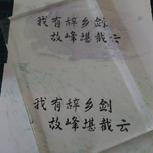 我有辞乡剑
故峰堪截云
我有辞乡剑
故峰堪截云